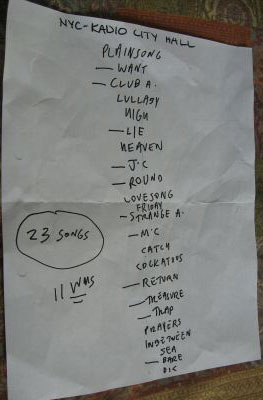 NYC-RADIO CITY HALL
PLAINSONG
— WANT
— CLUB A.
LULLABY
HIGH
— LIE
HEAVEN
— J.C
— ROUND
LOVESONG
FRIDAY
— STRANGE A.
— M.C
CATCH
COCKATOOS
— RETURN
— TREASURE
— TRAP
PRAYERS
INBETWEEN
SEA
— BARE
DIC
23 SONGS
11 WMS